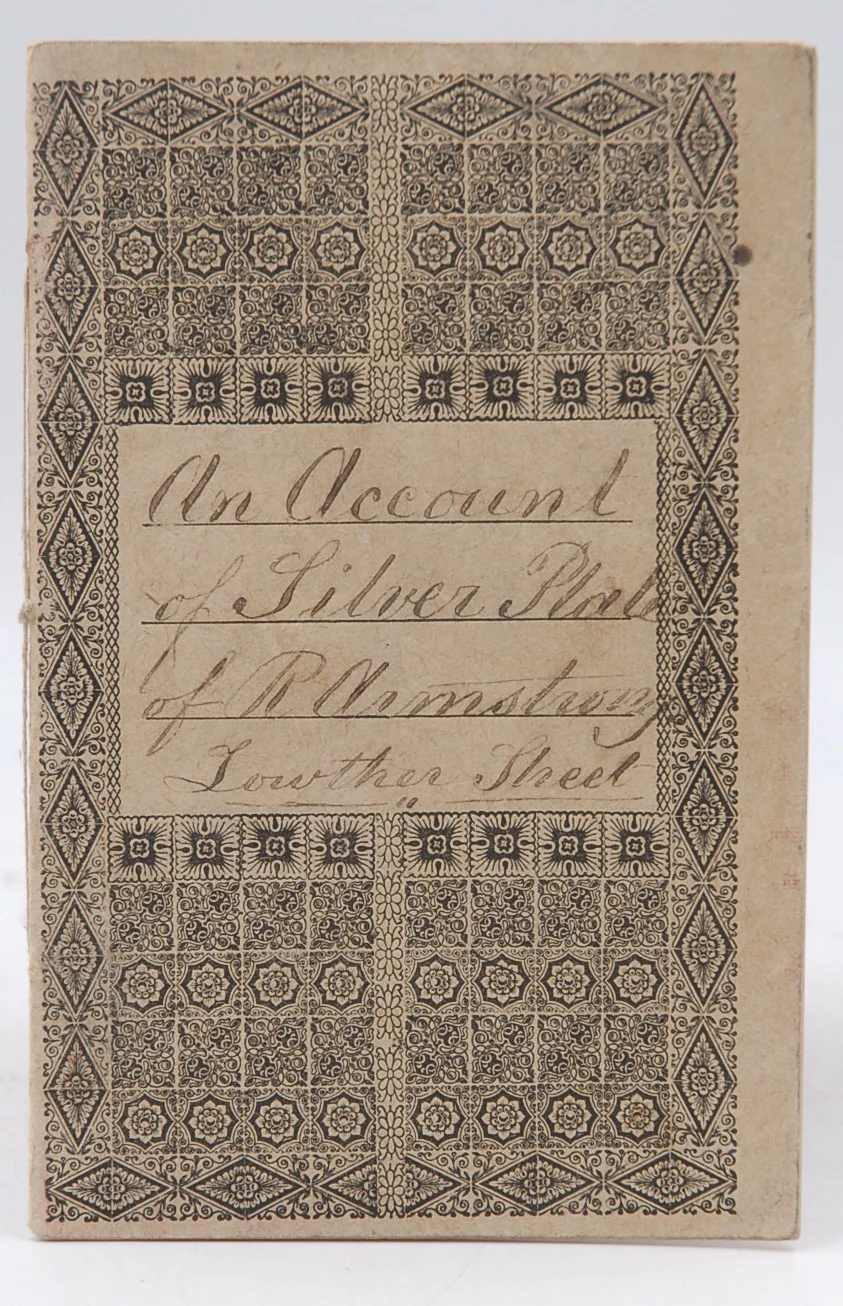 An Account
of Silver Plate
of R Armstrong
Lowther Street